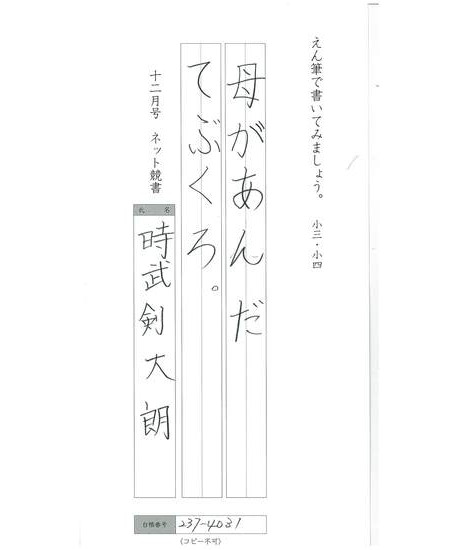 えん筆で書いてみましょう。　小三・小四
母があんだ
てぶくろ。
十二月号　ネット競書
氏　名
時武剣大朗
台帳番号 237-4031
《コピー不可》